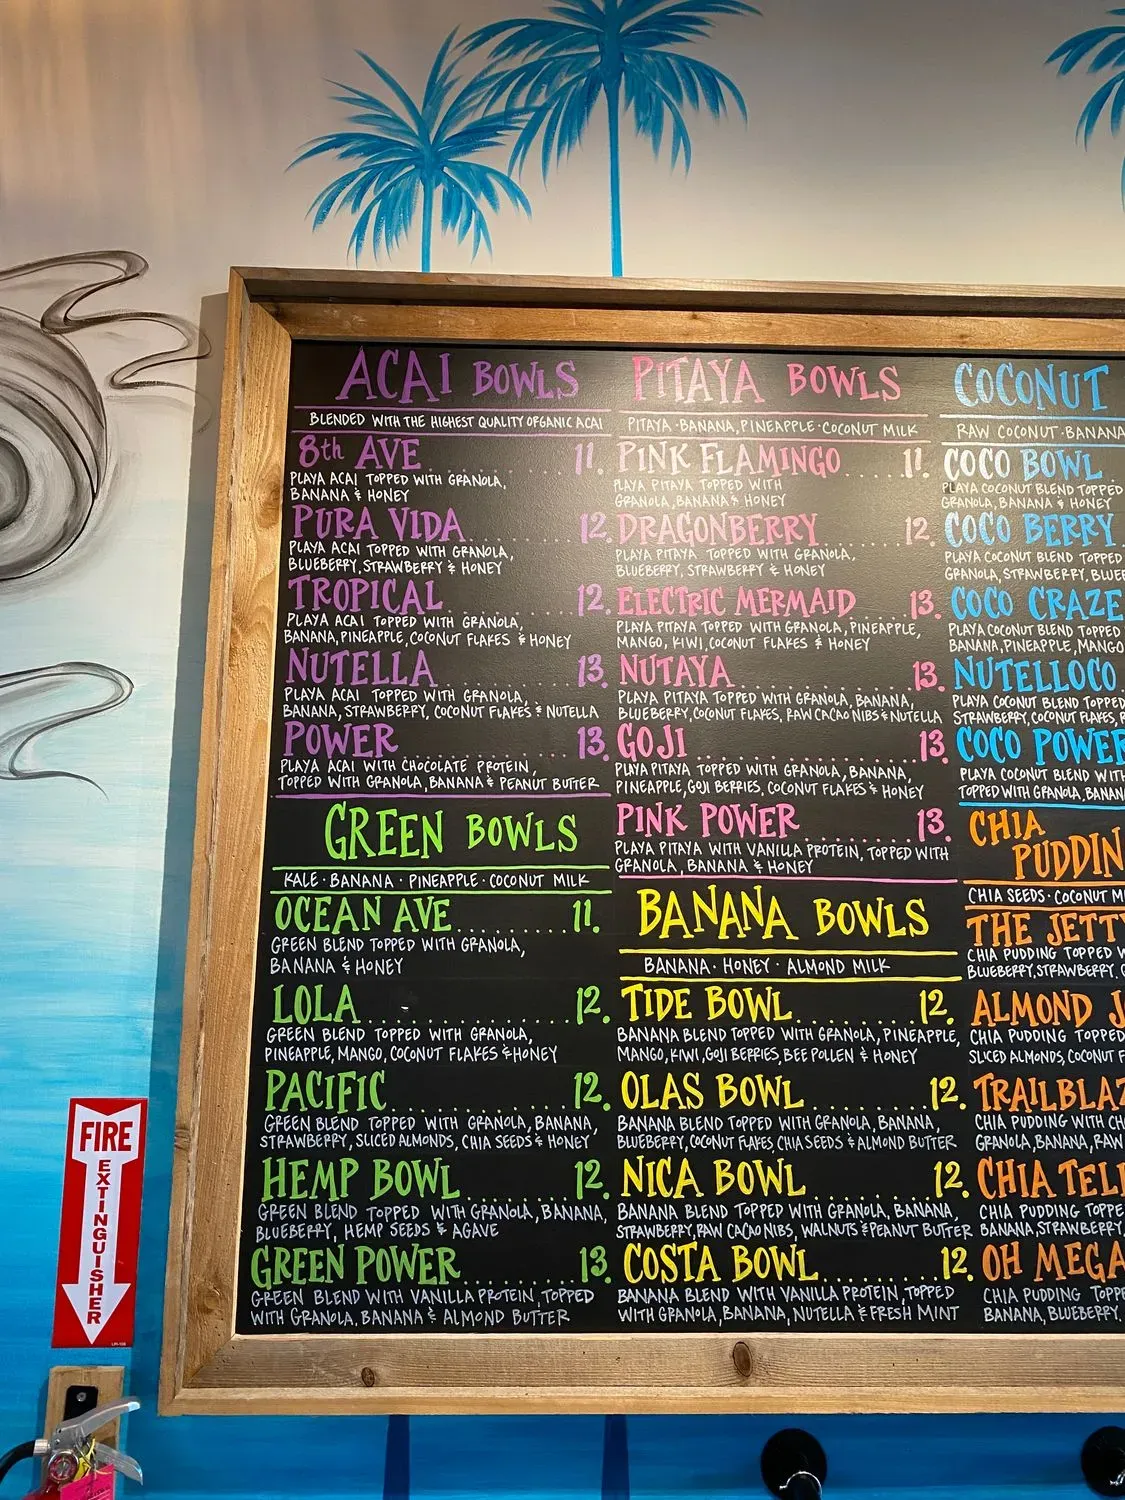 ACAI BOWLS
BLENDED WITH THE HIGHEST QUALITY ORGANIC ACAI
8th AVE........11.
PLAYA ACAI TOPPED WITH GRANOLA,
BANANA & HONEY
PURA VIDA........12.
PLAYA ACAI TOPPED WITH GRANOLA,
BLUEBERRY, STRAWBERRY & HONEY
TROPICAL........12.
PLAYA ACAI TOPPED WITH GRANOLA,
BANANA, PINEAPPLE, COCONUT FLAKES & HONEY
NUTELLA........13.
PLAYA ACAI TOPPED WITH GRANOLA,
BANANA, STRAWBERRY, COCONUT FLAKES & NUTELLA
POWER........13.
PLAYA ACAI WITH CHOCOLATE PROTEIN,
TOPPED WITH GRANOLA, BANANA & PEANUT BUTTER
GREEN BOWLS
KALE · BANANA · PINEAPPLE · COCONUT MILK
OCEAN AVE........11.
GREEN BLEND TOPPED WITH GRANOLA,
BANANA & HONEY
LOLA........12.
GREEN BLEND TOPPED WITH GRANOLA,
PINEAPPLE, MANGO, COCONUT FLAKES & HONEY
PACIFIC........12.
GREEN BLEND TOPPED WITH GRANOLA, BANANA,
STRAWBERRY, SLICED ALMONDS, CHIA SEEDS & HONEY
HEMP BOWL........12.
GREEN BLEND TOPPED WITH GRANOLA, BANANA,
BLUEBERRY, HEMP SEEDS & AGAVE
GREEN POWER........13.
GREEN BLEND WITH VANILLA PROTEIN, TOPPED
WITH GRANOLA, BANANA & ALMOND BUTTER
PITAYA BOWLS
PITAYA · BANANA, PINEAPPLE · COCONUT MILK
PINK FLAMINGO........11.
PLAYA PITAYA TOPPED WITH
GRANOLA, BANANA & HONEY
DRAGONBERRY........12.
PLAYA PITAYA TOPPED WITH GRANOLA,
BLUEBERRY, STRAWBERRY & HONEY
ELECTRIC MERMAID........13.
PLAYA PITAYA TOPPED WITH GRANOLA, PINEAPPLE,
MANGO, KIWI, COCONUT FLAKES & HONEY
NUTAYA........13.
PLAYA PITAYA TOPPED WITH GRANOLA, BANANA,
BLUEBERRY, COCONUT FLAKES, RAW CACAO NIBS & NUTELLA
GOJI........13.
PLAYA PITAYA TOPPED WITH GRANOLA, BANANA,
PINEAPPLE, GOJI BERRIES, COCONUT FLAKES & HONEY
PINK POWER........13.
PLAYA PITAYA WITH VANILLA PROTEIN, TOPPED WITH
GRANOLA, BANANA & HONEY
BANANA BOWLS
BANANA · HONEY · ALMOND MILK
TIDE BOWL........12.
BANANA BLEND TOPPED WITH GRANOLA, PINEAPPLE,
MANGO, KIWI, GOJI BERRIES, BEE POLLEN & HONEY
OLAS BOWL........12.
BANANA BLEND TOPPED WITH GRANOLA, BANANA,
BLUEBERRY, COCONUT FLAKES, CHIA SEEDS & ALMOND BUTTER
NICA BOWL........12.
BANANA BLEND TOPPED WITH GRANOLA, BANANA,
STRAWBERRY, RAW CACAO NIBS, WALNUTS & PEANUT BUTTER
COSTA BOWL........12.
BANANA BLEND WITH VANILLA PROTEIN, TOPPED
WITH GRANOLA, BANANA, NUTELLA & FRESH MINT
COCONUT
RAW COCONUT · BANANA
COCO BOWL
PLAYA COCONUT BLEND TOPPED
GRANOLA, BANANA & HONEY
COCO BERRY
PLAYA COCONUT BLEND TOPPED
GRANOLA, STRAWBERRY, BLUE
COCO CRAZE
PLAYA COCONUT BLEND TOPPED
BANANA, PINEAPPLE, MANGO
NUTELLOCO
PLAYA COCONUT BLEND TOPPED
STRAWBERRY, COCONUT FLAKES, R
COCO POWER
PLAYA COCONUT BLEND WITH
TOPPED WITH GRANOLA, BANAN
CHIA
PUDDIN
CHIA SEEDS · COCONUT M
THE JETTY
CHIA PUDDING TOPPED W
BLUEBERRY, STRAWBERRY,
ALMOND J
CHIA PUDDING TOPPED
SLICED ALMONDS, COCONUT F
TRAILBLAZ
CHIA PUDDING WITH CH
GRANOLA, BANANA, RAW
CHIA TEL
CHIA PUDDING TOPPE
BANANA, STRAWBERRY,
OH MEGA
CHIA PUDDING TOPPE
BANANA, BLUEBERRY,
FIRE
EXTINGUISHER